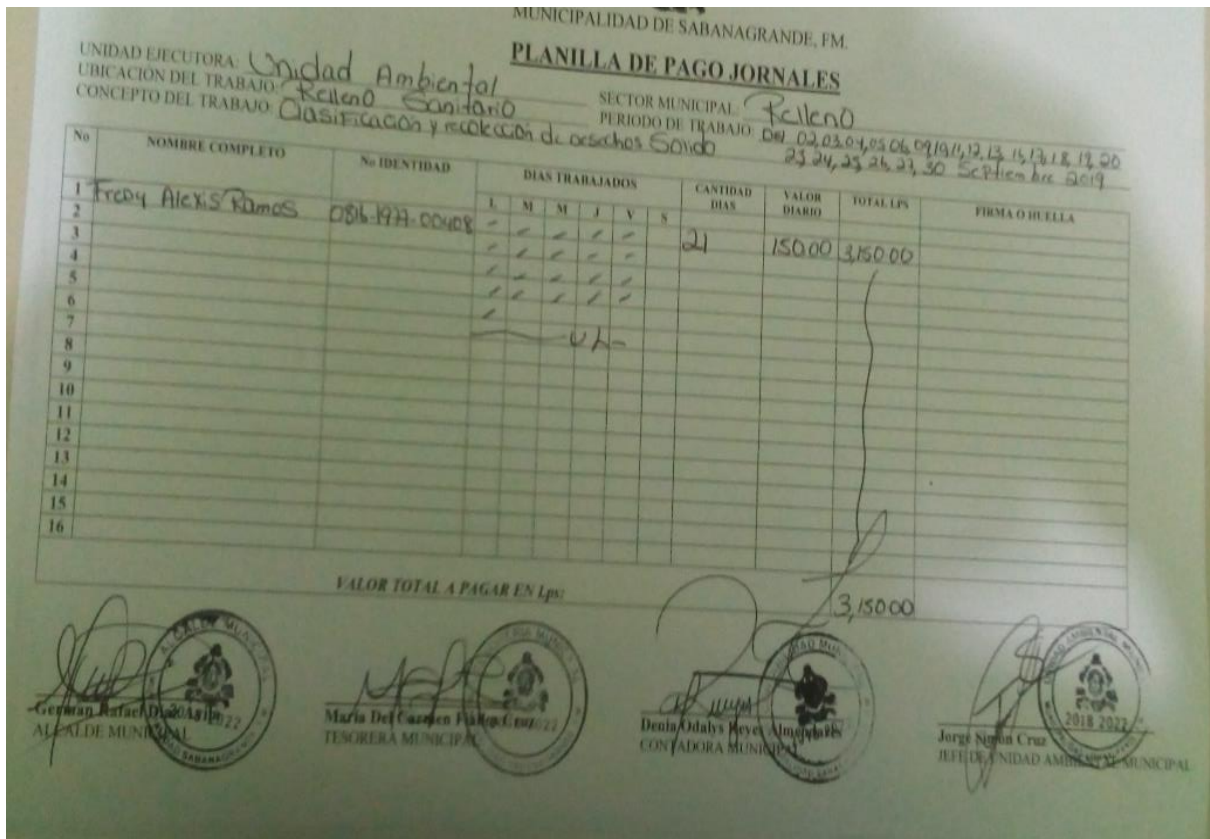 MUNICIPALIDAD DE SABANAGRANDE, FM.
PLANILLA DE PAGO JORNALES
UNIDAD EJECUTORA: Unidad Ambiental
UBICACIÓN DEL TRABAJO: Relleno Sanitario
SECTOR MUNICIPAL: Relleno
CONCEPTO DEL TRABAJO: Clasificación y recolección de desechos Solido
PERIODO DE TRABAJO: Del 02,03,04,05,06,09,
23,24,25,26,27,30 Septiembre 2019
No NOMBRE COMPLETO No IDENTIDAD DIAS TRABAJADOS CANTIDAD DIAS VALOR DIARIO TOTAL LPS FIRMA O HUELLA
L M M J V S
1 Fredy Alexis Ramos 21 150.00 3,150.00
2
3
4
5
6
7
8
9
10
11
12
13
14
15
16
VALOR TOTAL A PAGAR EN Lps:
3,150.00
German Rafael
ALCALDE MUNICIPAL
Maria Del Carmen Cruz
TESORERA MUNICIPAL
Denia Odalys Reyes
CONTADORA MUNICIPAL
Jorge Cruz
JEFE DE UNIDAD AMBIENTAL MUNICIPAL
2018 2022